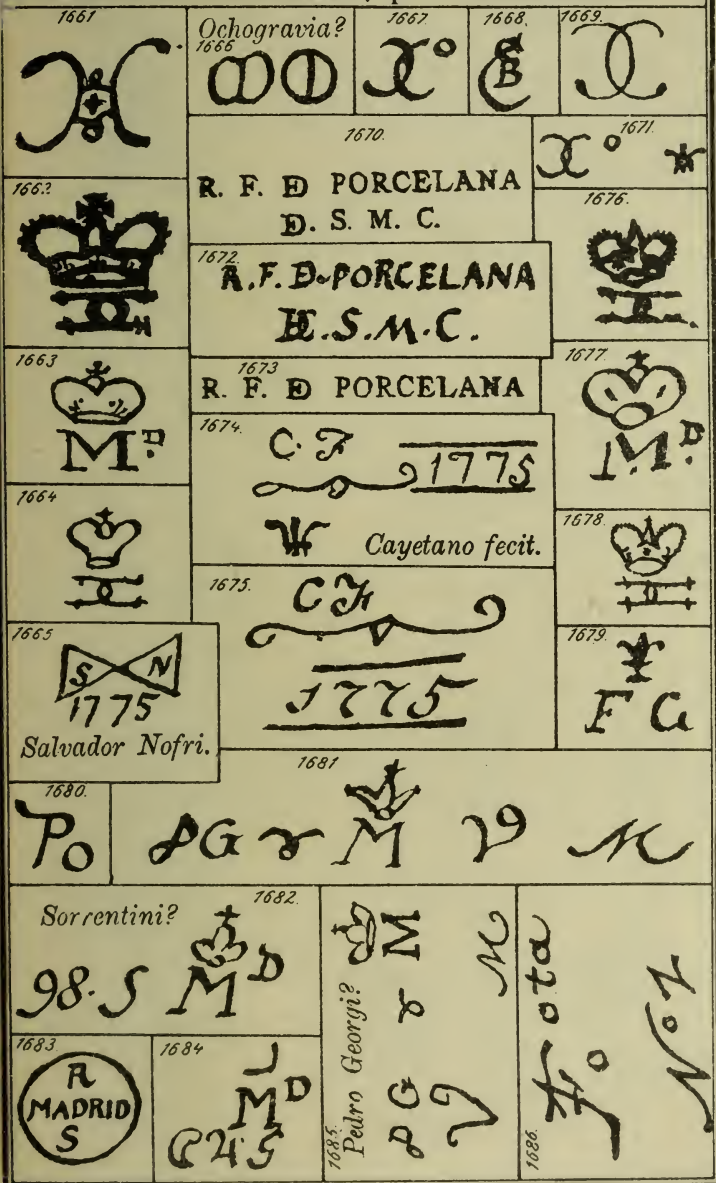 1661
Ochogravia?
1666
1667.
C°
1668.
C B
1669.
1670.
R. F. D PORCELANA
D. S. M. C.
1671.
1662
1672.
R.F.D-PORCELANA
DE.S.M.C.
1676.
1663
M.D.
1673
R. F. D PORCELANA
1677.
M.D.
1674.
C. F
1775
Cayetano fecit.
1664
1678.
1675.
C F
1775
1665
S N
1775
Salvador Nofri.
1679.
F G
1680.
Po
1681
P G r M V M
Sorrentini?
1682.
98. S M D
1683
R
MADRID
S
1684
M D
1685.
Pedro Georgi?
M r M
P G V
1686.
ota
No 2